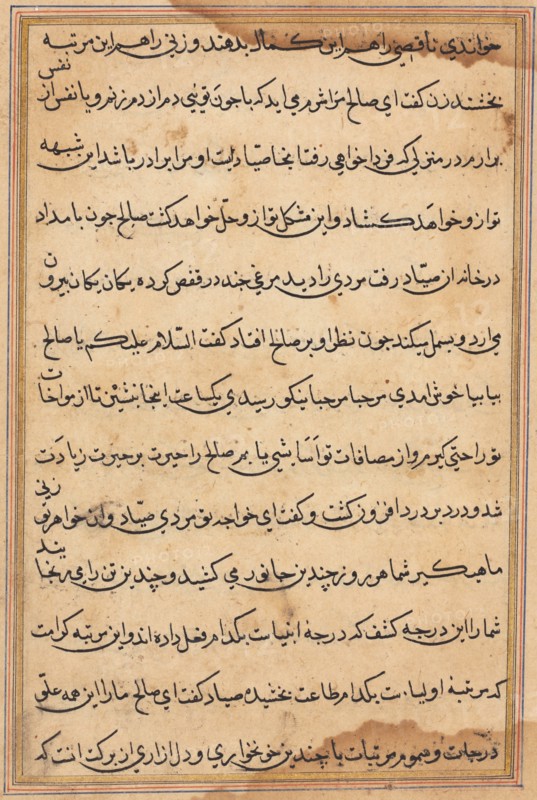 خواندی ناقصی را هم این کمال بدهند و زنی را هم این مرتبه
بخشند زن کفت ای صالح مرا شرم می اید که با جون تویی دم از دم زنم و یا نفس از نفس
برارم در منزلی که فردا خواهی رفت انجا صیادیست او مرا برادر باشد این شبهه
تو او خواهد کشاد و این مشکل تو او حل خواهد کشت صالح جون بامداد
در خانه ان صیاد رفت مردی را دید مرغی چند در قفص کرده یکان یکان بیرون
می ارد و بسمل میکند جون نظر او بر صالح افتاد کفت السلام علیکم یا صالح
بیا بیا خوش امدی مرحبا مرحبا نیکو رسیدی یکساعت اینجا بنشین تا از مواخات
تو راحتی کیرم و از مصافات تو اسایشی یابم صالح را حیرت بر حیرت زیادت
شد و درد بر درد افزون کشت و کفت ای خواجه تو مردی صیاد وان خواهر تو زنی
ماهیکیر شما هر روز چندین جانور می کشید و چندین تن را می رنجانید
شما را این درجه کشف که درجهٔ انبیاست بکدام فعل داده اند و این مرتبه کرامت
که مرتبهٔ اولیاست بکدام طاعت بخشیده صیاد کفت ای صالح ما را این همه علو
درجات و سمو مرتبات با چندین خونخواری و دل ازاری از برکت انست که